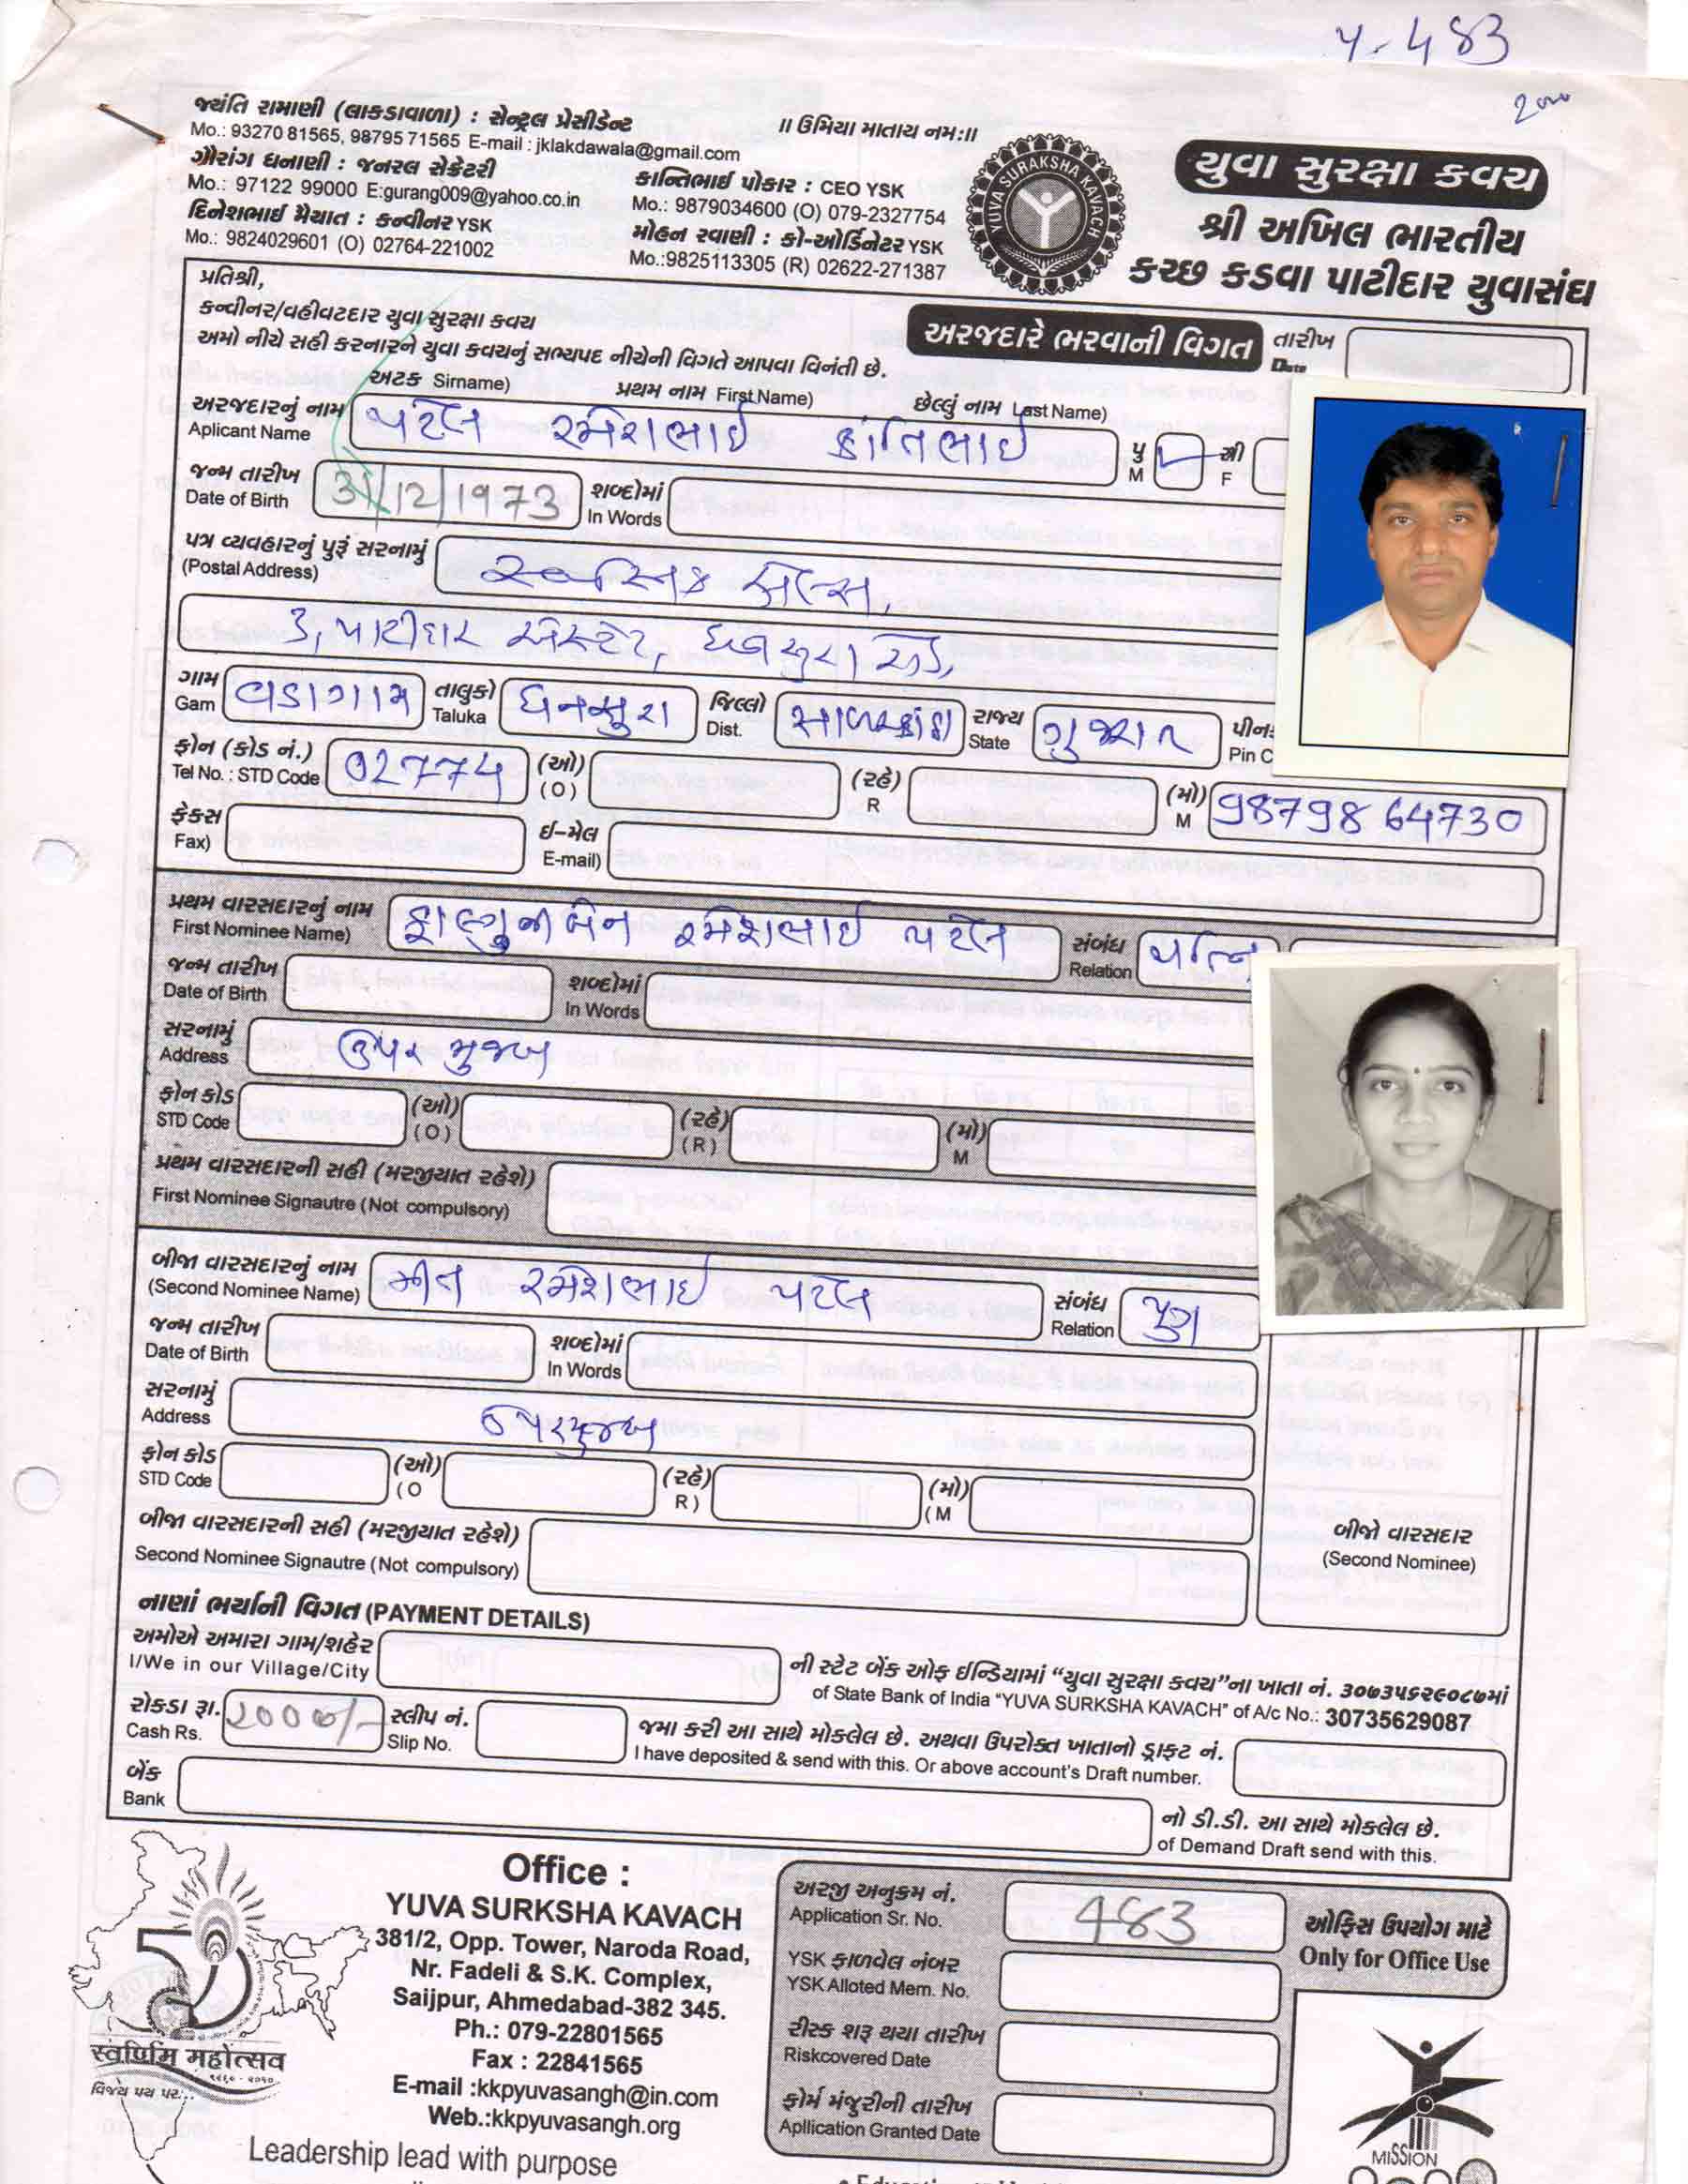 ૫-483
2000
જયંતિ રામાણી (લાકડાવાળા) : સેન્ટ્રલ પ્રેસીડેન્ટ
Mo.: 93270 81565, 98795 71565 E-mail : jklakdawala@gmail.com
ગૌરાંગ ધનાણી : જનરલ સેક્રેટરી
Mo.: 97122 99000 E:gurang009@yahoo.co.in
દિનેશભાઈ મૈયાત : કન્વીનર YSK
Mo.: 9824029601 (O) 02764-221002
॥ ઉમિયા માતાય નમઃ॥
કાન્તિભાઈ પોકાર : CEO YSK
Mo.: 9879034600 (O) 079-2327754
મોહન રવાણી : કો-ઓર્ડિનેટર YSK
Mo.:9825113305 (R) 02622-271387
YUVA SURAKSHA KAVACH
યુવા સુરક્ષા કવચ
શ્રી અખિલ ભારતીય
કચ્છ કડવા પાટીદાર યુવાસંઘ
પ્રતિશ્રી,
કન્વીનર/વહીવટદાર યુવા સુરક્ષા કવચ
અમો નીચે સહી કરનારને યુવા કવચનું સભ્યપદ નીચેની વિગતે આપવા વિનંતી છે.
અરજદારે ભરવાની વિગત તારીખ
Date
અટક Sirname) પ્રથમ નામ First Name) છેલ્લું નામ Last Name)
અરજદારનું નામ પટેલ રમેશભાઈ કાંતિભાઈ પુ સ્ત્રી
Aplicant Name M F
જન્મ તારીખ 31/12/1973 શબ્દોમાં
Date of Birth In Words
પત્ર વ્યવહારનું પુરૂં સરનામું
(Postal Address) સ્વસ્તિક સેલ્સ,
૩, પાટીદાર એસ્ટેટ, ધનસુરા રોડ,
ગામ વડાગામ તાલુકો ધનસુરા જિલ્લો સાબરકાંઠા રાજ્ય ગુજરાત પીન
Gam Taluka Dist. State Pin C
ફોન (કોડ નં.) 02774 (ઓ) (રહે) (મો) 98798 64730
Tel No. : STD Code (O) R M
ફેક્સ ઈ-મેલ
Fax) E-mail)
પ્રથમ વારસદારનું નામ ફાલ્ગુનીબેન રમેશભાઈ પટેલ સંબંધ પત્નિ
First Nominee Name) Relation
જન્મ તારીખ શબ્દોમાં
Date of Birth In Words
સરનામું ઉપર મુજબ
Address
ફોન કોડ (ઓ) (રહે) (મો)
STD Code (O) (R) M
પ્રથમ વારસદારની સહી (મરજીયાત રહેશે)
First Nominee Signautre (Not compulsory)
બીજા વારસદારનું નામ મીત રમેશભાઈ પટેલ સંબંધ પુત્ર
(Second Nominee Name) Relation
જન્મ તારીખ શબ્દોમાં
Date of Birth In Words
સરનામું ઉપર મુજબ
Address
ફોન કોડ (ઓ) (રહે) (મો)
STD Code (O R) (M
બીજા વારસદારની સહી (મરજીયાત રહેશે)
Second Nominee Signautre (Not compulsory)
બીજો વારસદાર
(Second Nominee)
નાણાં ભર્યાની વિગત (PAYMENT DETAILS)
અમોએ અમારા ગામ/શહેર
I/We in our Village/City
ની સ્ટેટ બેંક ઓફ ઈન્ડિયામાં “યુવા સુરક્ષા કવચ”ના ખાતા નં. ૩૦૭૩૫૬૨૯૦૮૭માં
of State Bank of India “YUVA SURKSHA KAVACH” of A/c No.: 30735629087
રોકડા રૂા. 2000/- સ્લીપ નં.
Cash Rs. Slip No.
જમા કરી આ સાથે મોકલેલ છે. અથવા ઉપરોક્ત ખાતાનો ડ્રાફ્ટ નં.
I have deposited & send with this. Or above account's Draft number.
બેંક
Bank
નો ડી.ડી. આ સાથે મોકલેલ છે.
of Demand Draft send with this.
स्वर्णिम महोत्सव
૧૯૬૦ - ૨૦૧૦
વિજય પથ પર...
Office :
YUVA SURKSHA KAVACH
381/2, Opp. Tower, Naroda Road,
Nr. Fadeli & S.K. Complex,
Saijpur, Ahmedabad-382 345.
Ph.: 079-22801565
Fax : 22841565
E-mail :kkpyuvasangh@in.com
Web.:kkpyuvasangh.org
Leadership lead with purpose
અરજી અનુક્રમ નં. 483
Application Sr. No.
YSK ફાળવેલ નંબર
YSK Alloted Mem. No.
રીસ્ક શરૂ થયા તારીખ
Riskcovered Date
ફોર્મ મંજુરીની તારીખ
Apllication Granted Date
ઓફિસ ઉપયોગ માટે
Only for Office Use
MISSION